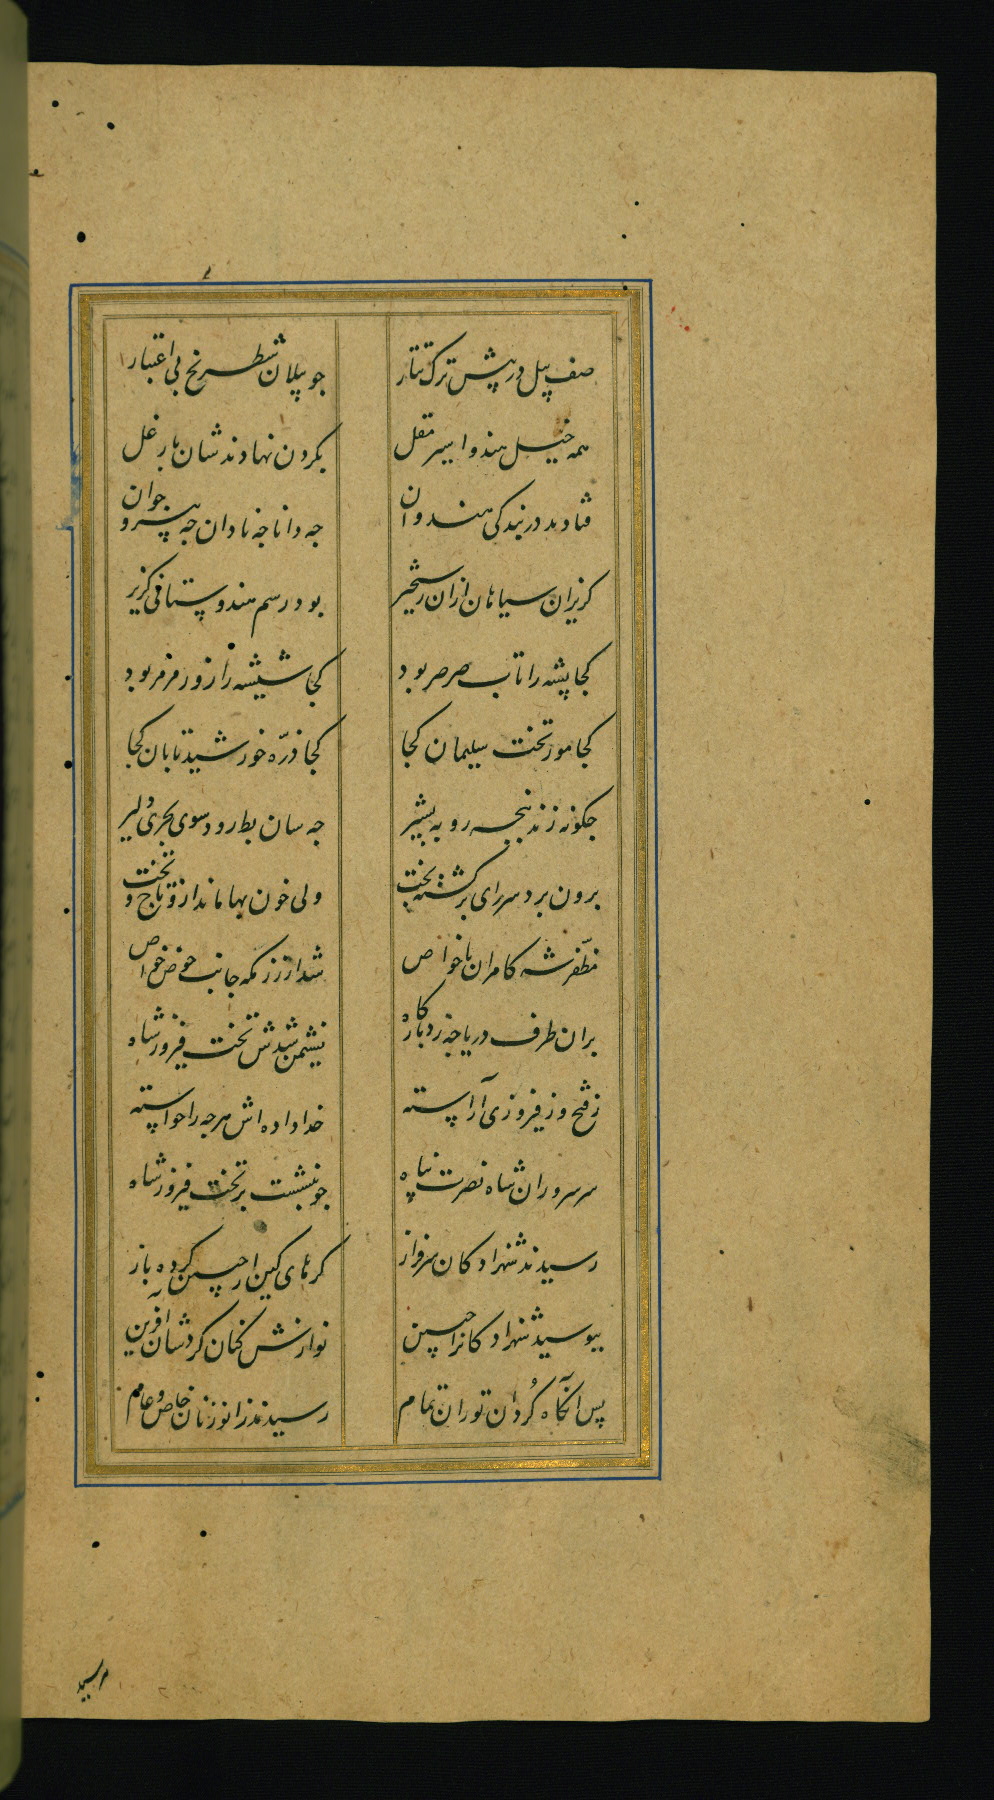 صف پیل در پیش ترک تتار جو پیلان شطرنج بی اعتبار
همه خیل هندو اسیر مقل بکردن نهادند شان بار غل
فتادند در بندکی هندوان جه دانا جه نادان جه پیر و جوان
کریزان سیاهان ازان رستخیز بود رسم هندوستانی کریز
کجا پشه را تاب صرصر بود کجا شیشه را زور مرمر بود
کجا مور تخت سلیمان کجا کجا ذرّه خورشید تابان کجا
جکونه زند پنجه روبه بشیر جه سان بط رود سوی بحری دلیر
برون برد سر رای برکشته بخت ولی خون بها ماند ازو تاج و تخت
مظّفر شه کامران با خواص شد از رزمکه جانب حوض خواص
بران طرف دریاجه زد بارکاه نشیمن شدش تخت فیروز شاه
ز فتح و ز فیروزی آراسته خدا داده اش هرجه را خواسته
سر سروران شاه نصرت پناه جو بنشست بر تخت فیروز شاه
رسیدند شهزادکان سرفراز کرهای کین از جبین کرده باز
ببوسید شهزادکانرا جبین نوازش کنان کردشان آفرین
پس آنکاه کُردان توران تمام رسیدند زانو زنان خاص و عام